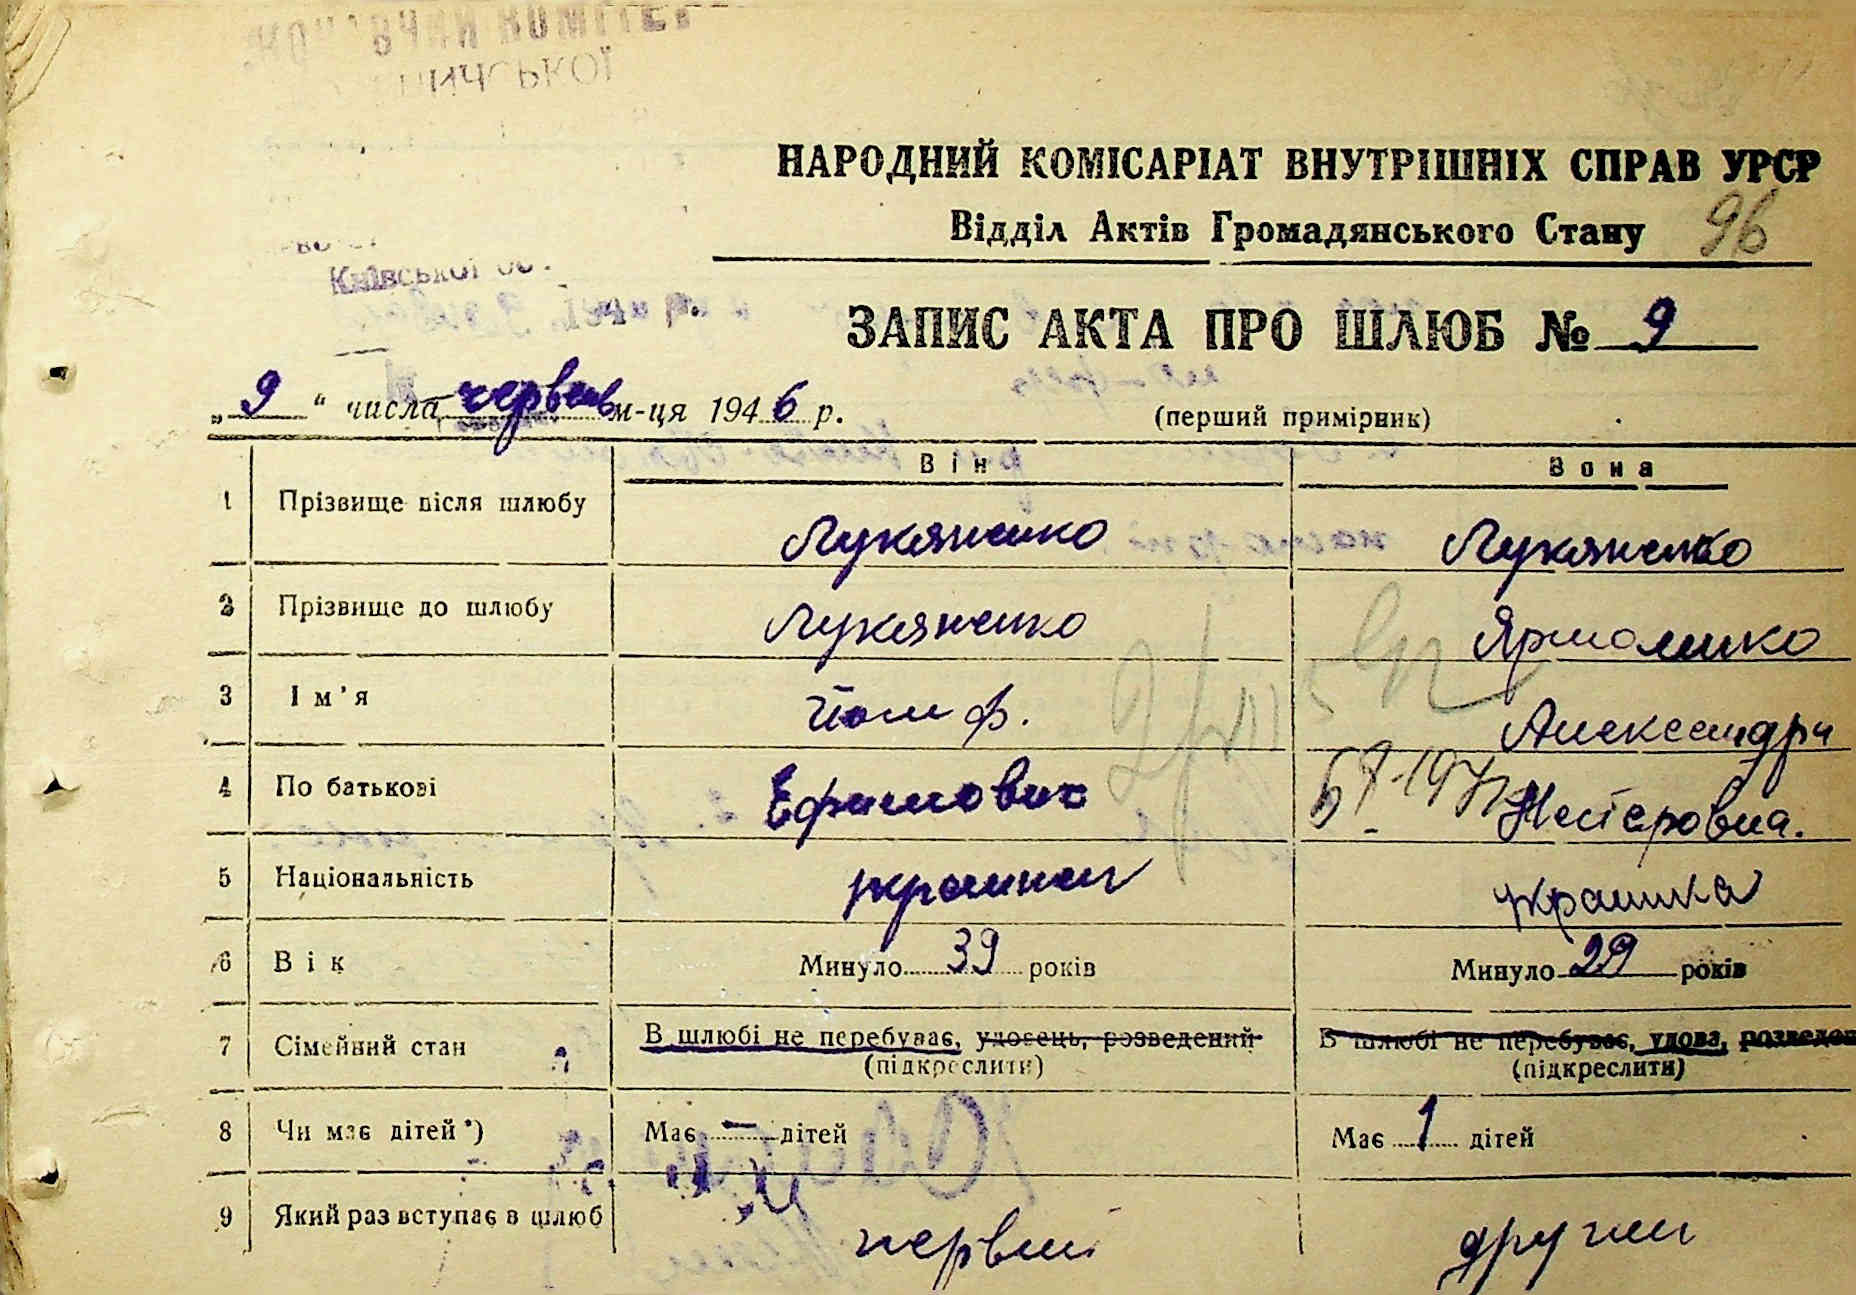 НАРОДНИЙ КОМІСАРІАТ ВНУТРІШНІХ СПРАВ УРСР
Відділ Актів Громадянського Стану 96
Київської об.
ЗАПИС АКТА ПРО ШЛЮБ № 9
„9“ числа червень м-ця 1946 р. (перший примірник)
Він Вона
1 Прізвище після шлюбу Лукяненко Лукяненко
2 Прізвище до шлюбу Лукяненко Ярмоленко
3 Ім'я Йосиф. Александра
4 По батькові Ефимович Нестеровна.
5 Національність украинец украинка
6 Вік Минуло 39 років Минуло 29 років
7 Сімейний стан В шлюбі не перебуває, удовець, розведений В шлюбі не перебуває, удова, розведен
(підкреслити) (підкреслити)
8 Чи має дітей*) Має — дітей Має 1 дітей
9 Який раз вступає в шлюб первий другий